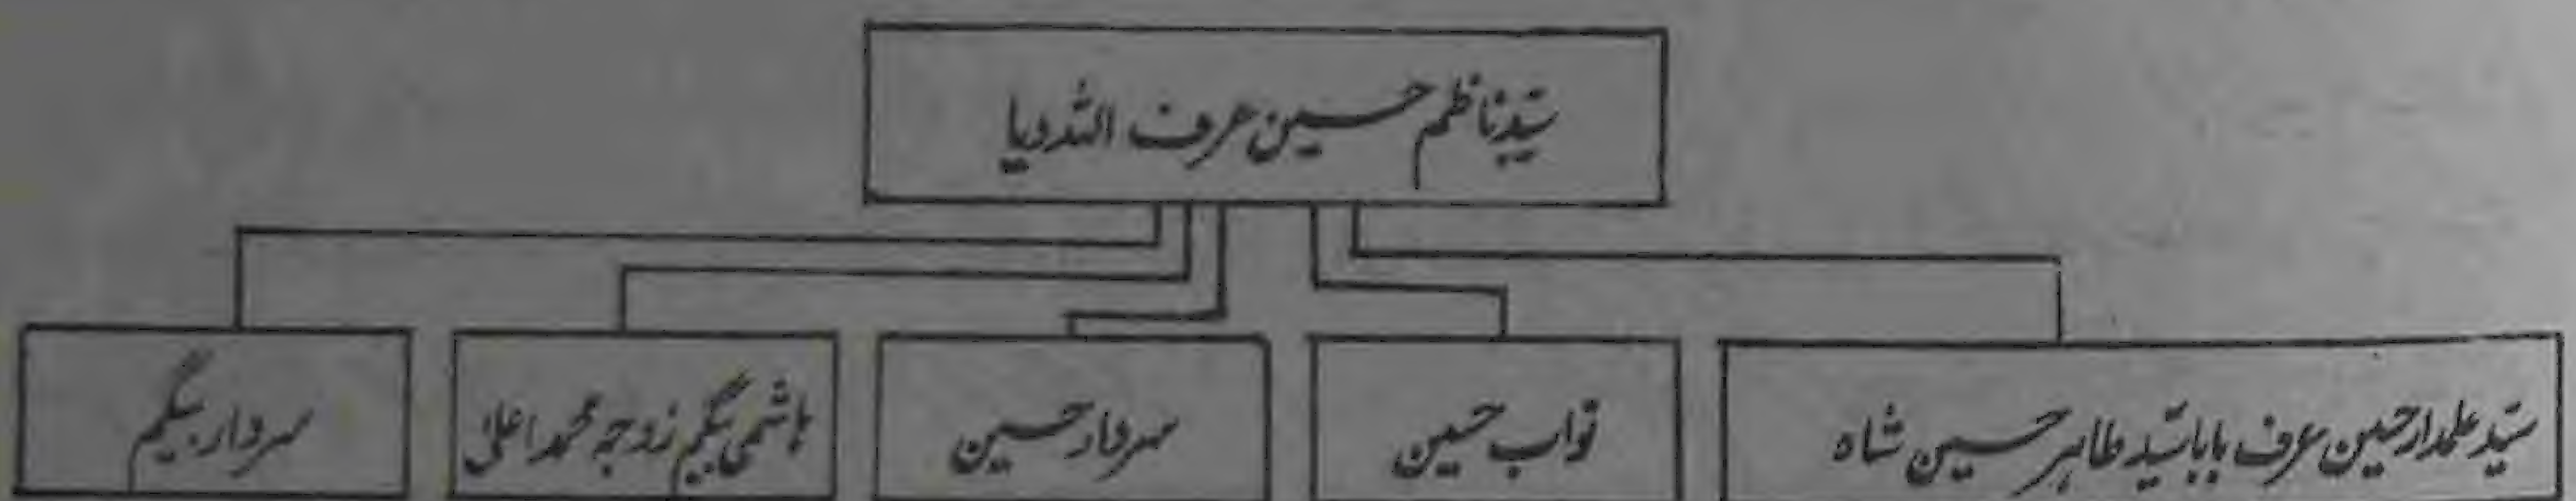 سید ناظم حسین عرف اللہ دیا
سید علمدار حسین عرف بابا سید طاہر حسین شاہ
نواب حسین
سردار حسین
ہاشمی بیگم زوجہ محمد اعلیٰ
سردار بیگم